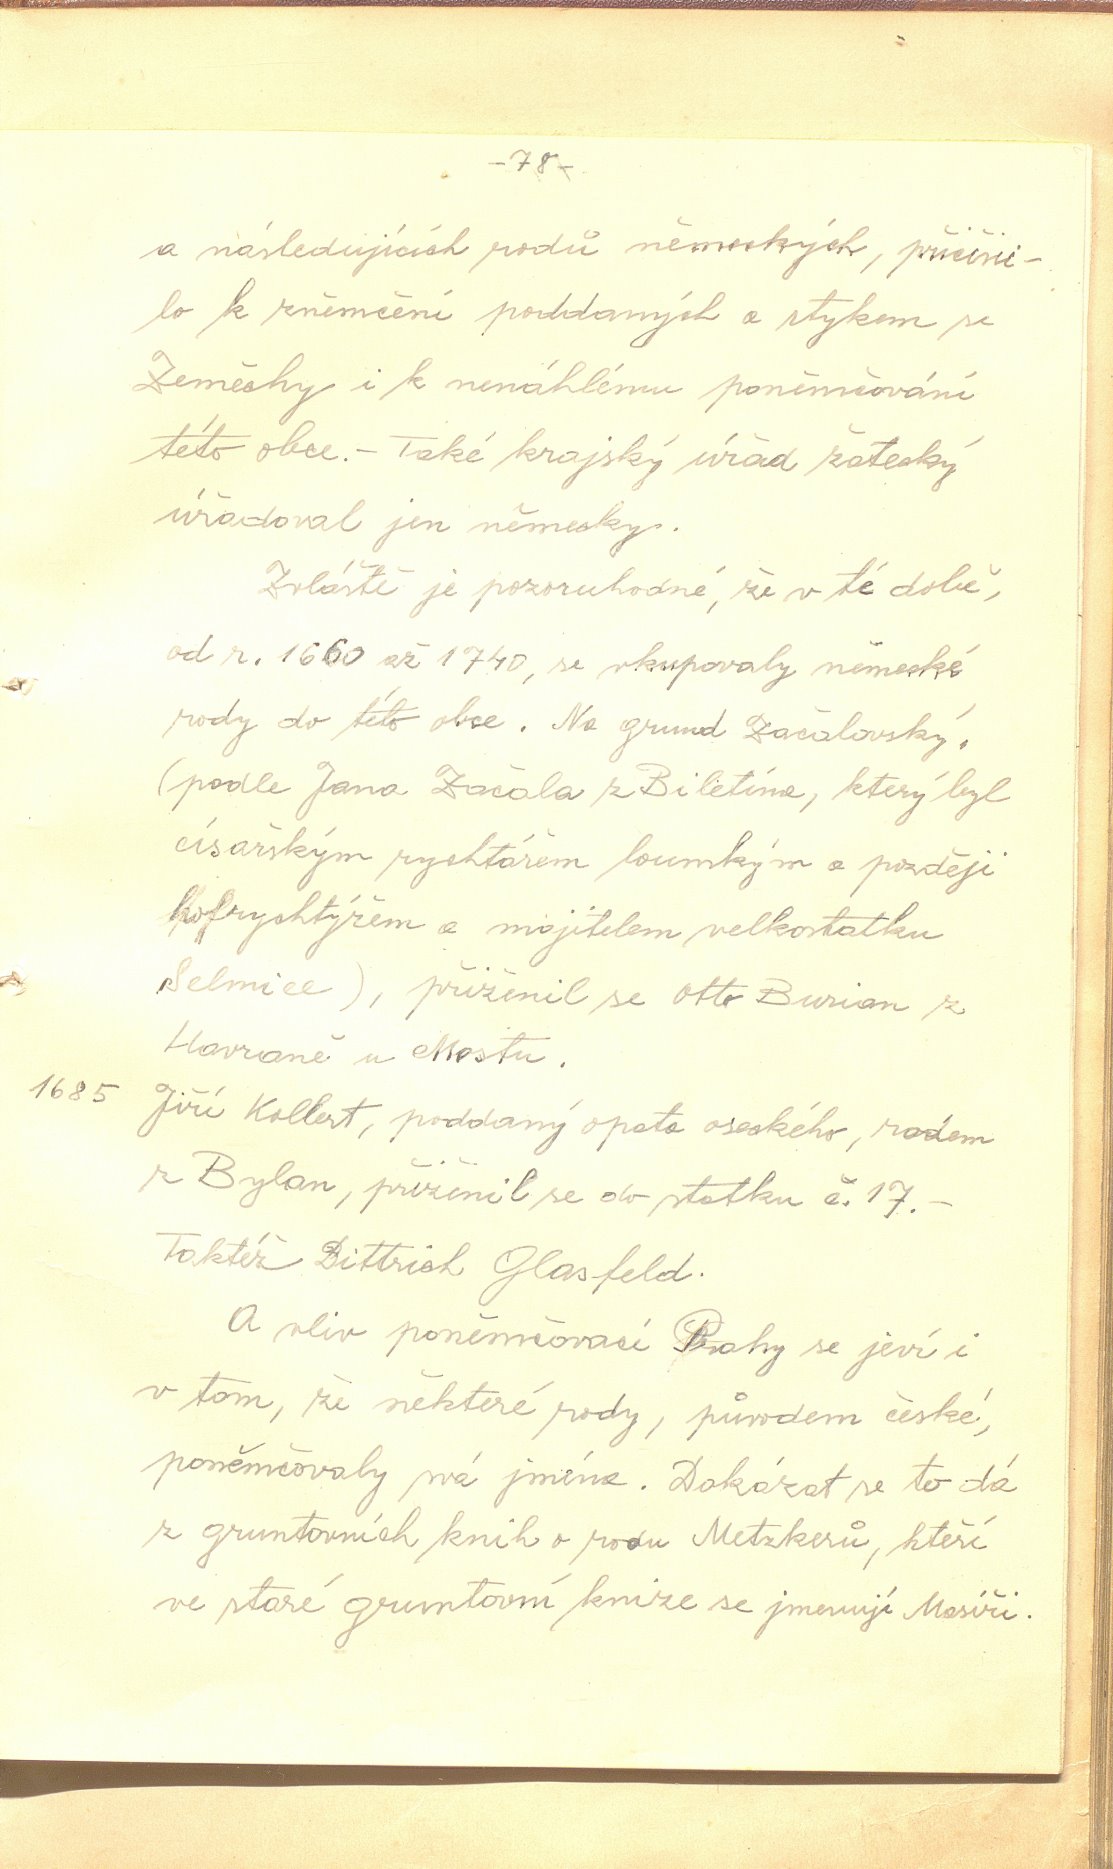 -78-
a následujících rodů německých, přičini-
lo k zněmčení poddaných a stykem se
Zeměchy i k nenáhlému poněmčování
této obce. - Také krajský úřad žatecký
úřadoval jen německy.
Zvláště je pozoruhodné, že v té době,
od r. 1660 až 1740, se vkupovaly německé
rody do této obce. Na grund Začalovský,
(podle Jana Začala z Biletína, který byl
císařským rychtářem lounským a později
hofrychtýřem a majitelem velkostatku
Selmice), přiženil se Otto Burian z
Havraně u Mostu.
1685 Jiří Kollert, poddaný opata oseckého, rodem
z Bylan, přiženil se do statku č. 17. -
Taktéž Dittrich Glasfeld.
A vliv poněmčovací Prahy se jeví i
v tom, že některé rody, původem české,
poněmčovaly svá jména. Dokázat se to dá
z gruntovních knih o rodu Metzkerů, kteří
ve staré gruntovní knize se jmenují